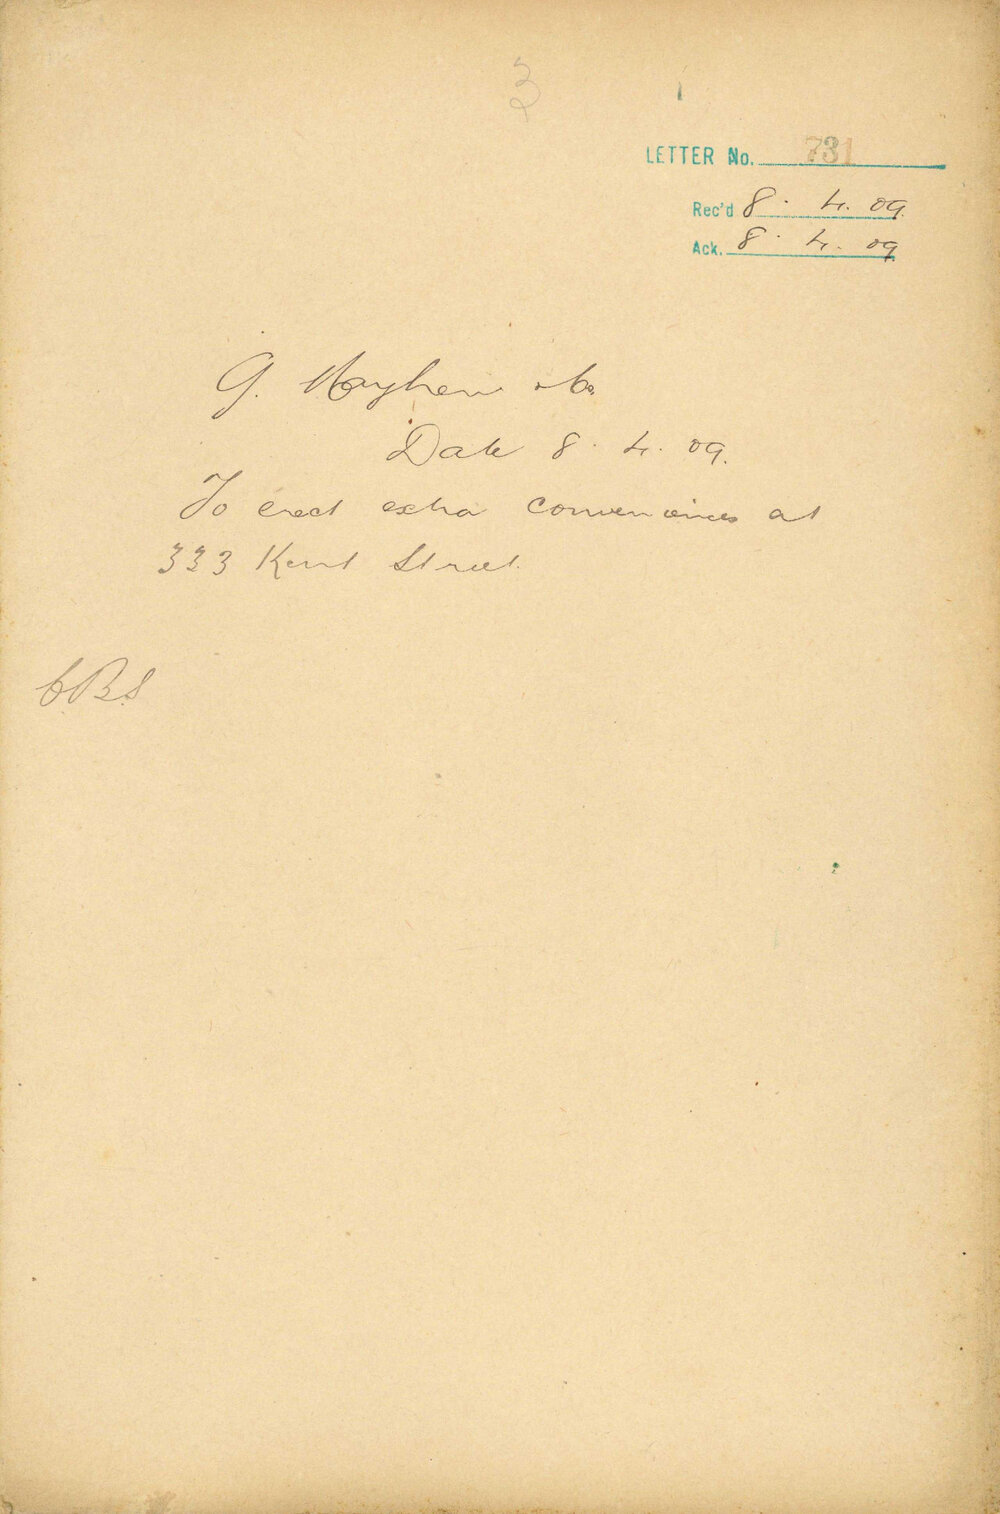 3
LETTER No. 731
Rec'd 8. 4. 09.
Ack. 8. 4. 09
G. Mayhew & Co.
Date 8. 4. 09.
To erect extra conveniences at
333 Kent Street.
CBS